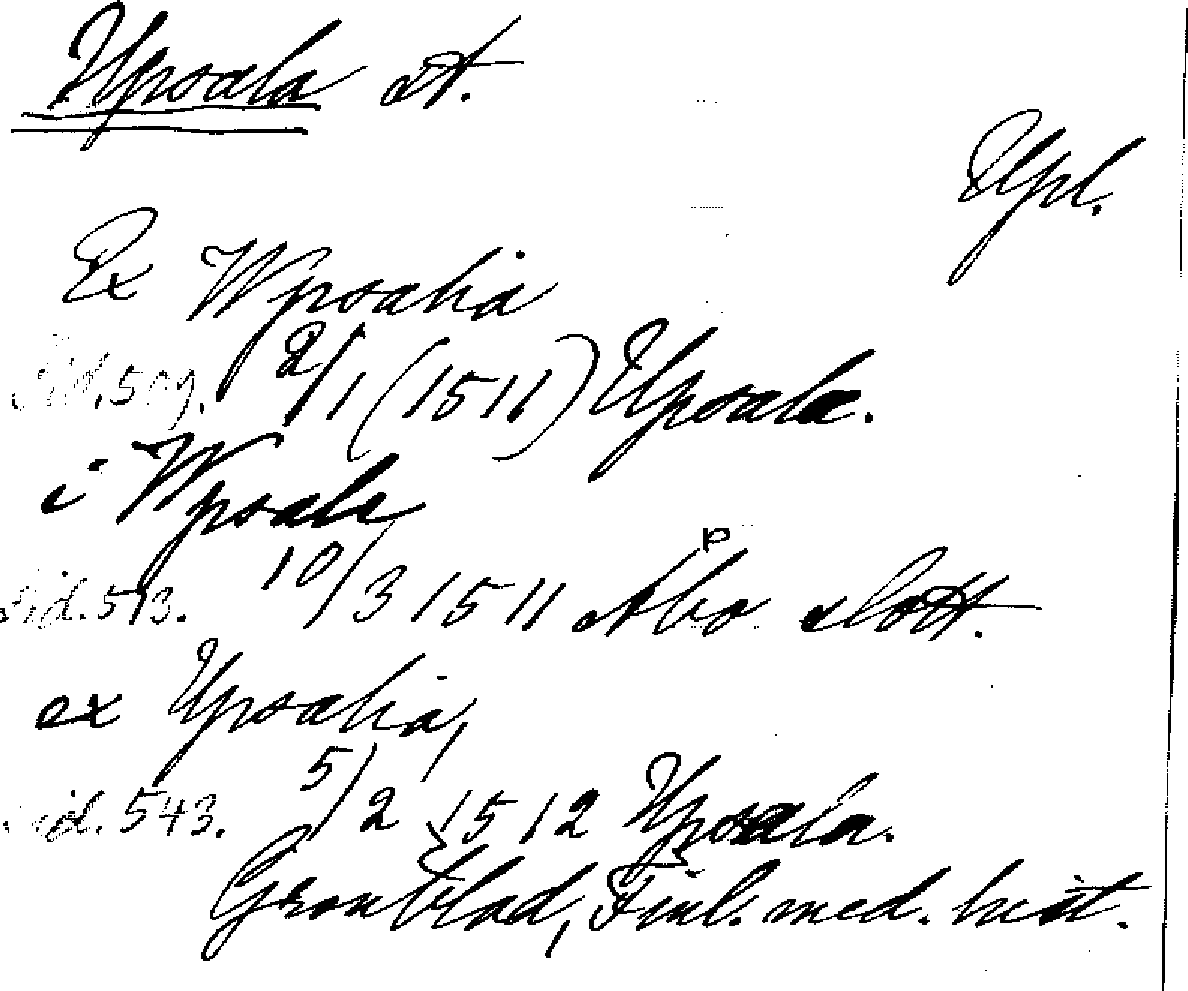 Upsala st.
Upl.
Ex Wpsalia
sid. 509. 2/1 (1511) Upsala.
i Wpsala
sid. 513. 10/3 1511 Åbo slott.
ex Upsalia,
sid. 543. 5/2 1512 Upsala.
Grönblad, Finl. med. hist.